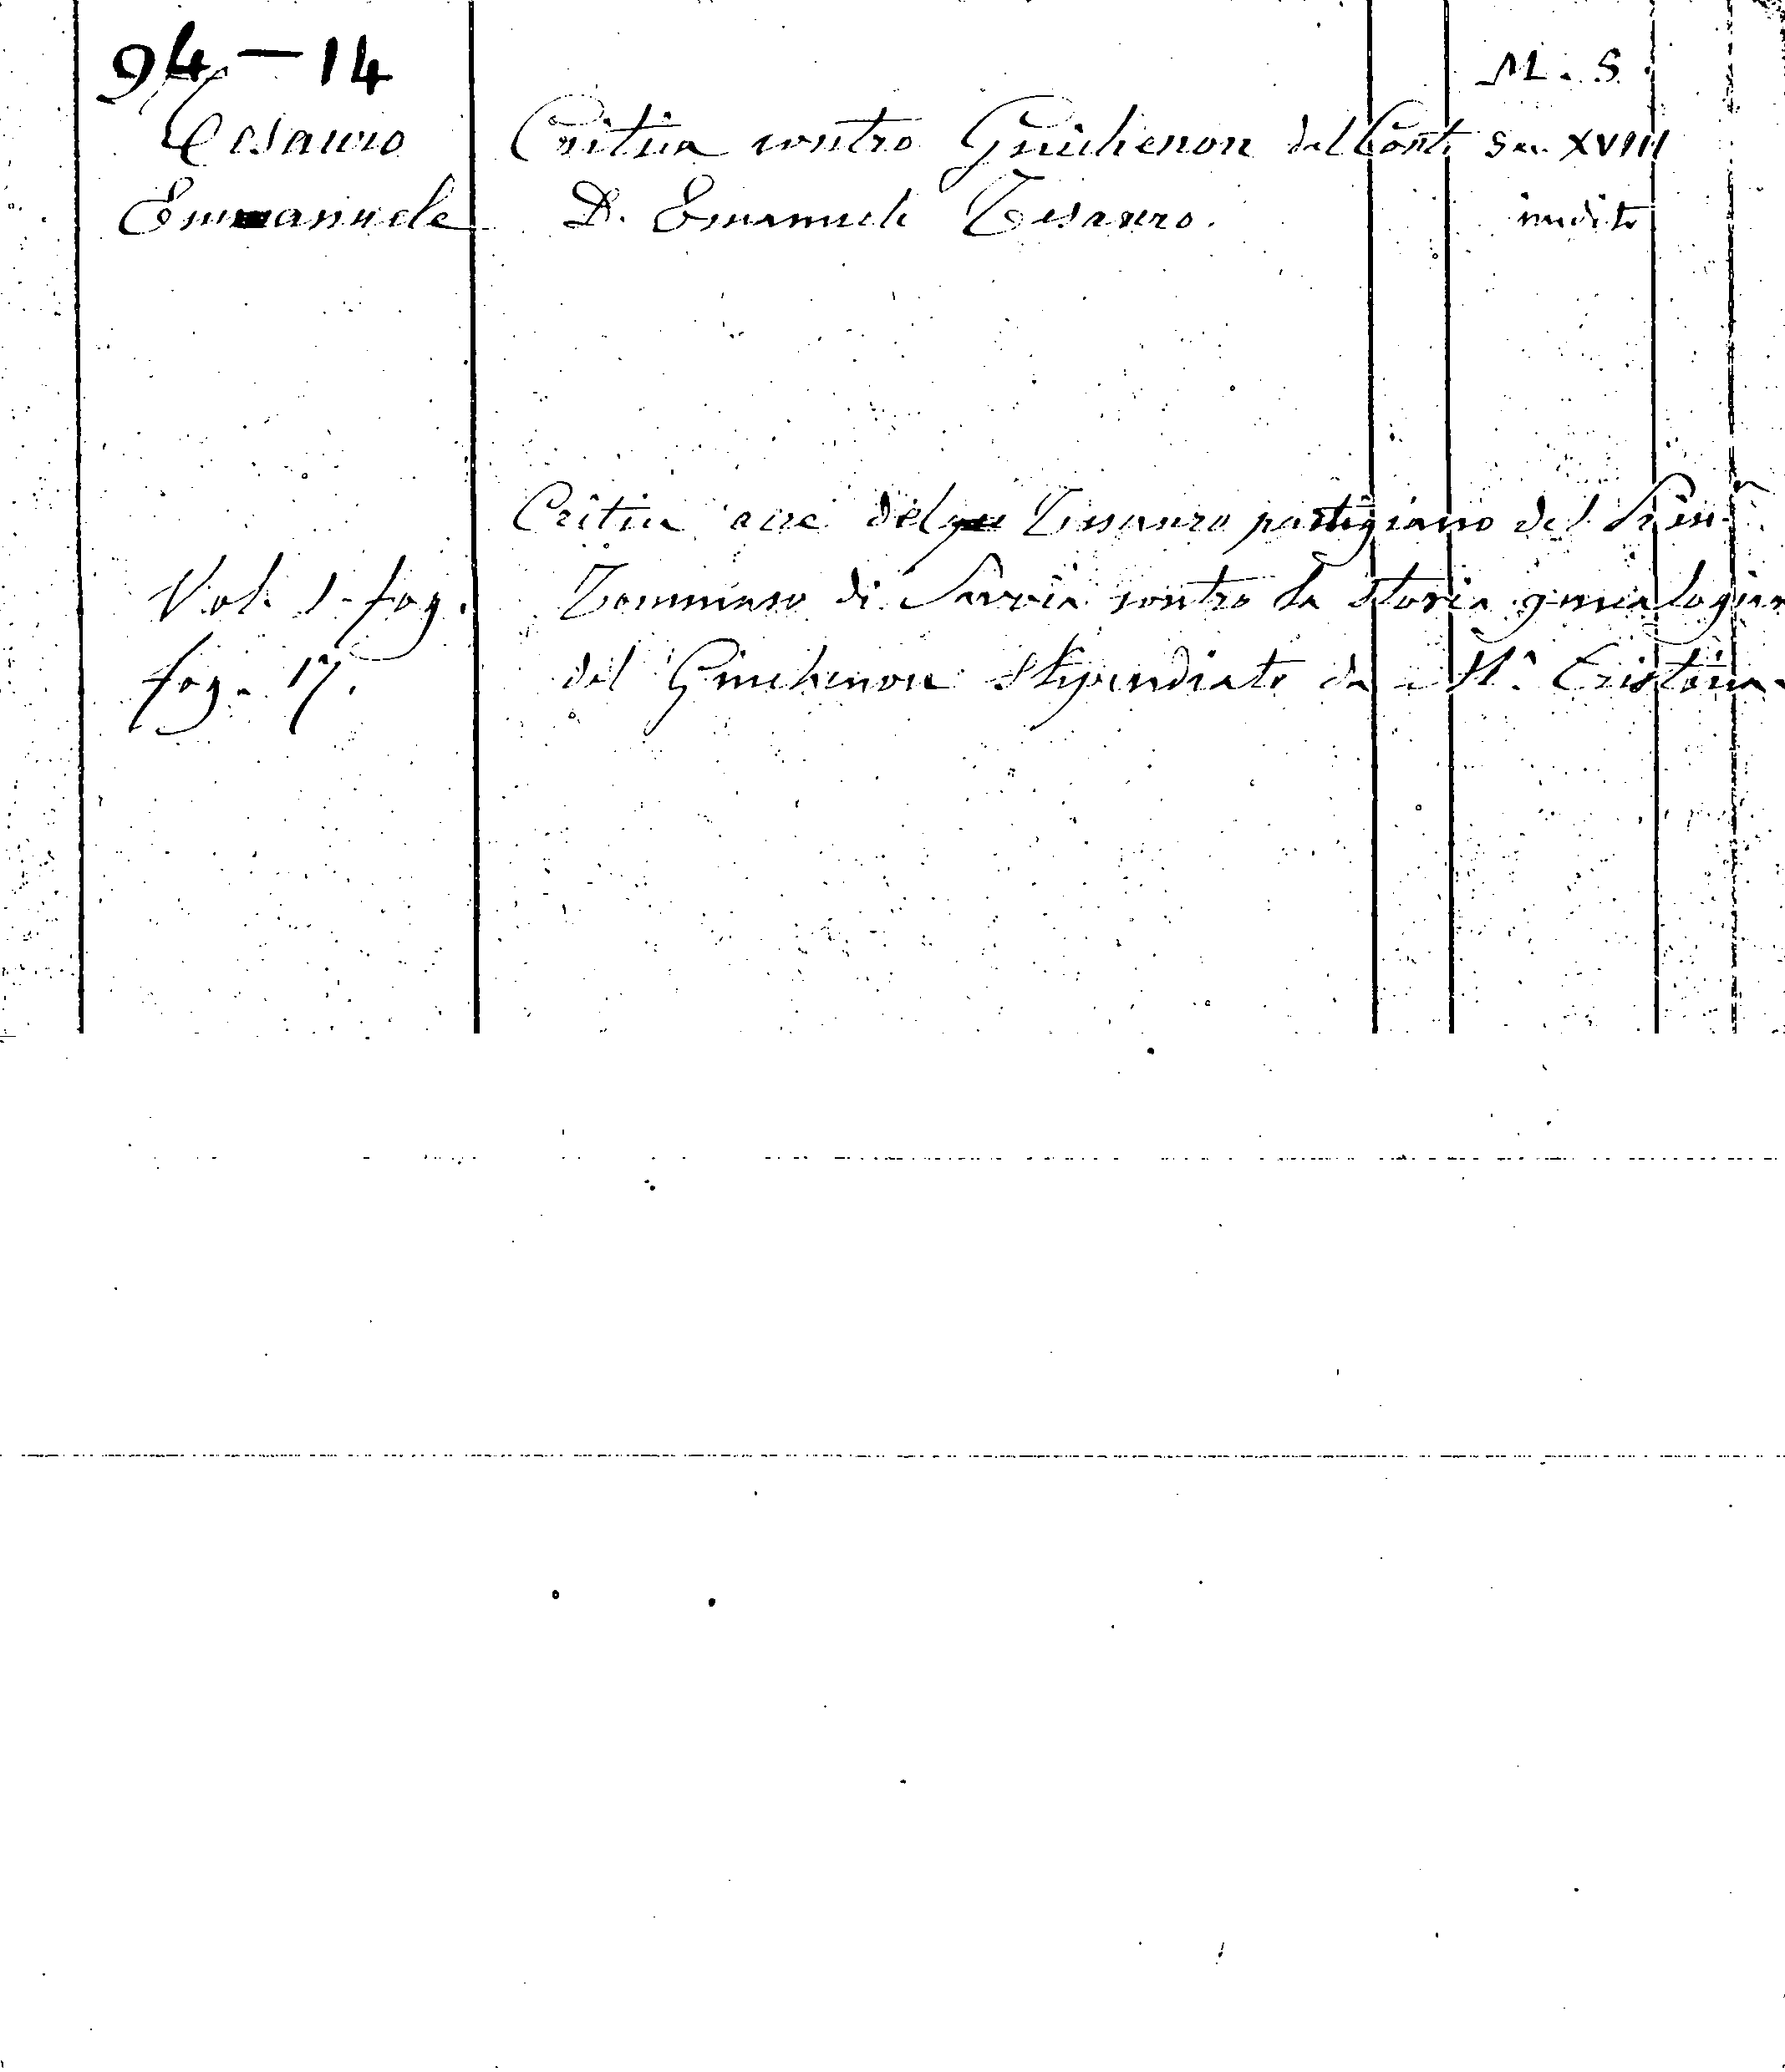 94 – 14
M. S.
Tesauro
Critica contro Guichenon del Conte
Sec. XVIII
Emmanuele
D. Emanuele Tesauro.
inedito
Critica acre del Tessauro partigiano del Prin.
Vol. 1 - fog.
Tommaso di Savoia contro la storia genealogica
fog. 17.
del Guichenon stipendiato da M.ª Cristina.